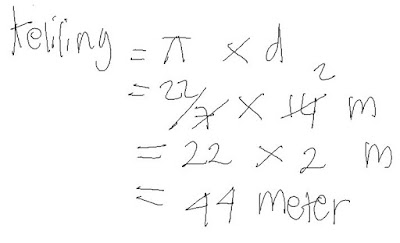 keliling = π × d
= 22/7 × 14 2 m
= 22 × 2 m
= 44 meter